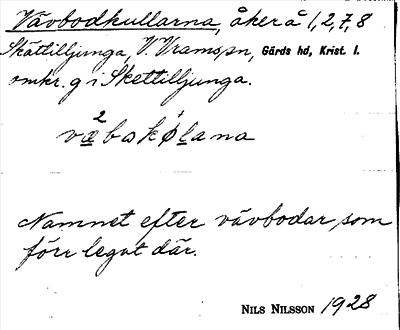 Vävbodkullarna, åker å 1,2,7,8
Skättilljunga, V. Vrams sn, Gärds hd, Krist. l.
omkr. g i Skettilljunga.
væbakølana
Namnet efter vävbodar, som
förr legat där.
NILS NILSSON 1928